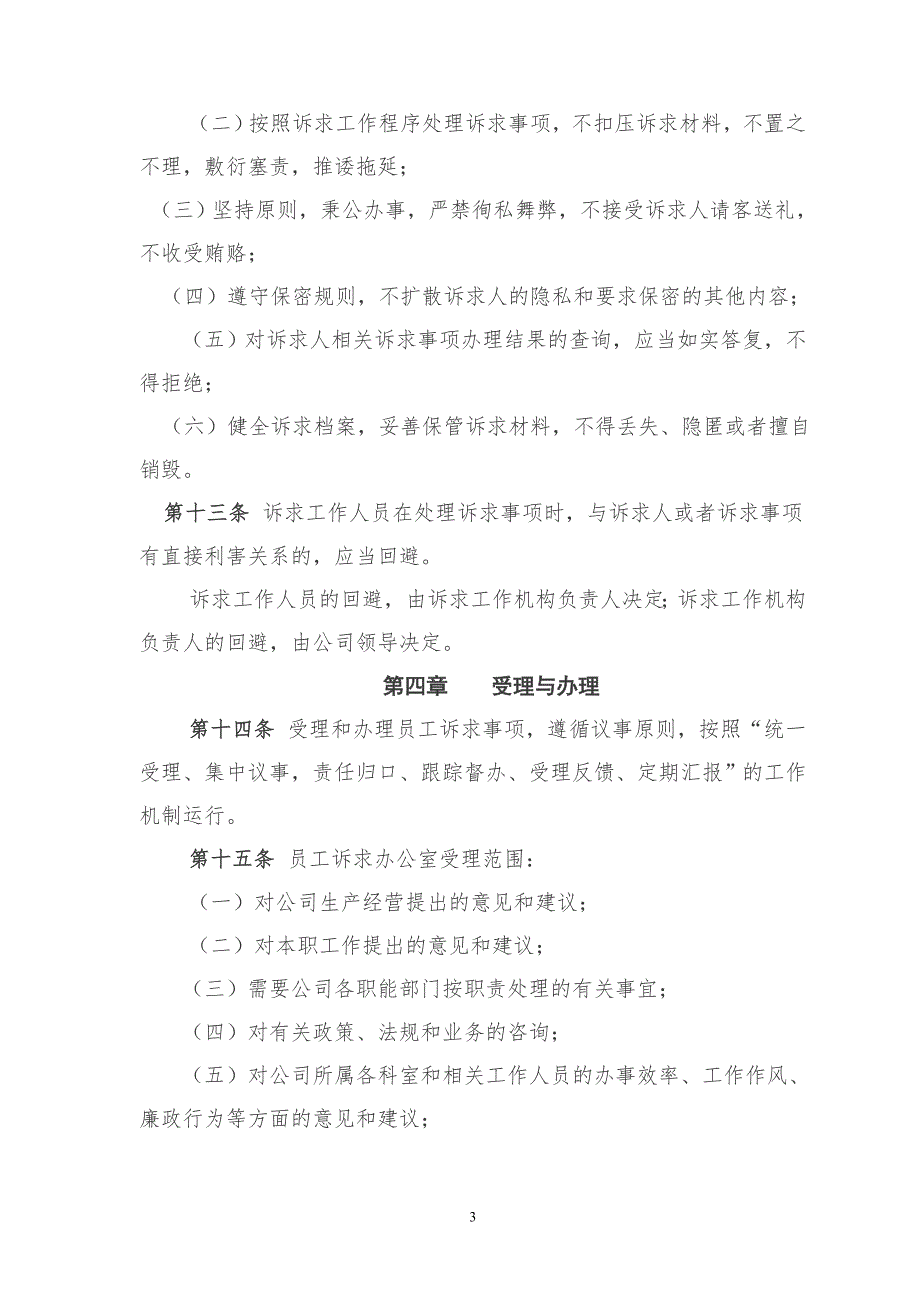 （二）按照诉求工作程序处理诉求事项，不扣压诉求材料，不置之
不理，敷衍塞责，推诿拖延；
（三）坚持原则，秉公办事，严禁徇私舞弊，不接受诉求人请客送礼，
不收受贿赂；
（四）遵守保密规则，不扩散诉求人的隐私和要求保密的其他内容；
（五）对诉求人相关诉求事项办理结果的查询，应当如实答复，不
得拒绝；
（六）健全诉求档案，妥善保管诉求材料，不得丢失、隐匿或者擅自
销毁。
第十三条 诉求工作人员在处理诉求事项时，与诉求人或者诉求事项
有直接利害关系的，应当回避。
诉求工作人员的回避，由诉求工作机构负责人决定；诉求工作机构
负责人的回避，由公司领导决定。
第四章 受理与办理
第十四条 受理和办理员工诉求事项，遵循议事原则，按照“统一
受理、集中议事，责任归口、跟踪督办、受理反馈、定期汇报”的工作
机制运行。
第十五条 员工诉求办公室受理范围：
（一）对公司生产经营提出的意见和建议；
（二）对本职工作提出的意见和建议；
（三）需要公司各职能部门按职责处理的有关事宜；
（四）对有关政策、法规和业务的咨询；
（五）对公司所属各科室和相关工作人员的办事效率、工作作风、
廉政行为等方面的意见和建议；
3